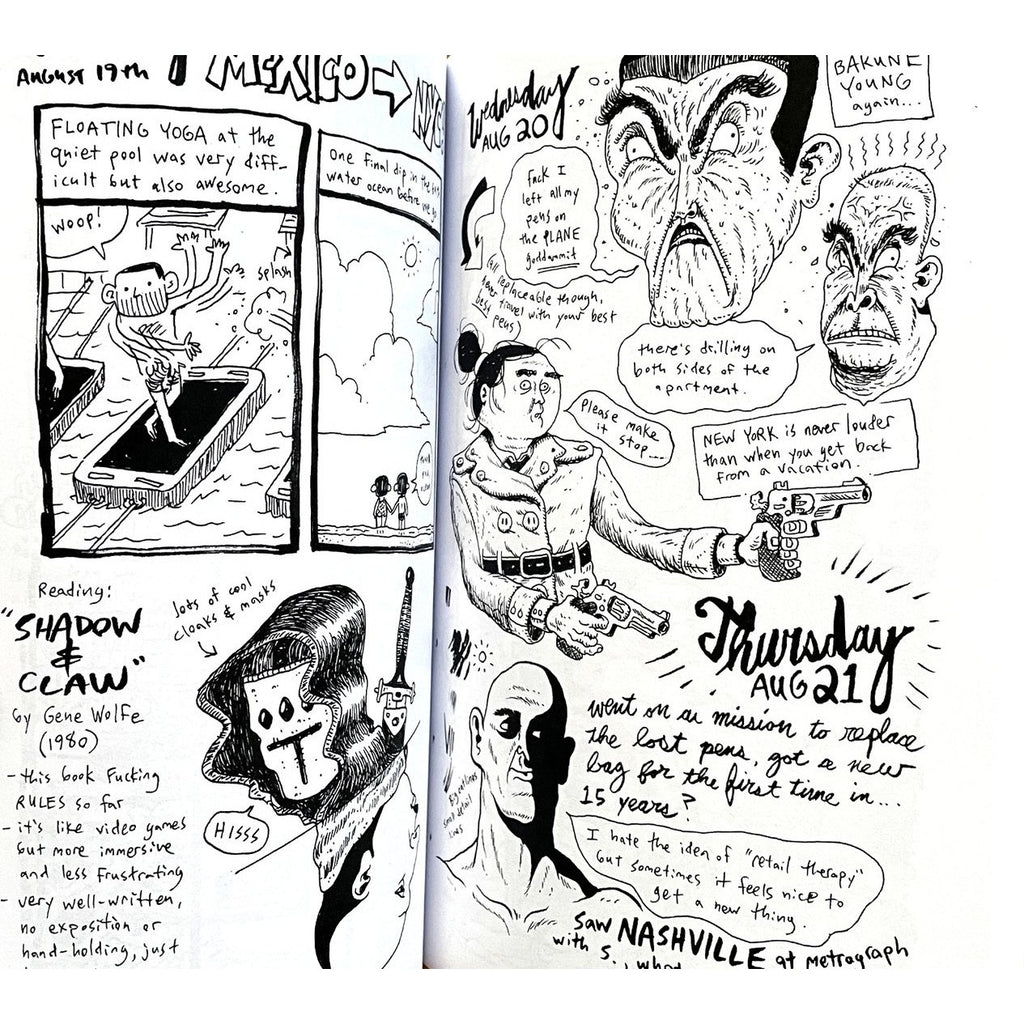 AUGUST 19th
MEXICO → NYC
FLOATING YOGA at the
quiet pool was very diff-
icult but also awesome.
WOOP!
splash
One final dip in the
water ocean before we go
Reading:
"SHADOW
&
CLAW"
by Gene Wolfe
(1980)
- this book Fucking
RULES so far
- it's like video games
but more immersive
and less frustrating
- very well-written,
no exposition or
hand-holding, just
lots of cool
cloaks & masks
HISSS
Wednesday
AUG 20
BAKUNE
YOUNG
again...
Fuck I
left all my
pens on
the PLANE
goddammit
replaceable though,
never travel with your best
best pens)
there's drilling on
both sides of the
apartment.
Please make
it stop...
NEW YORK is never louder
than when you get back
from a vacation.
Thursday
AUG 21
went on a mission to replace
the lost pens, got a new
bag for the first time in...
15 years?
Big outlines
small detail
lines
I hate the idea of "retail therapy"
but sometimes it feels nice to
get a new thing.
Saw NASHVILLE at Metrograph
with S.,